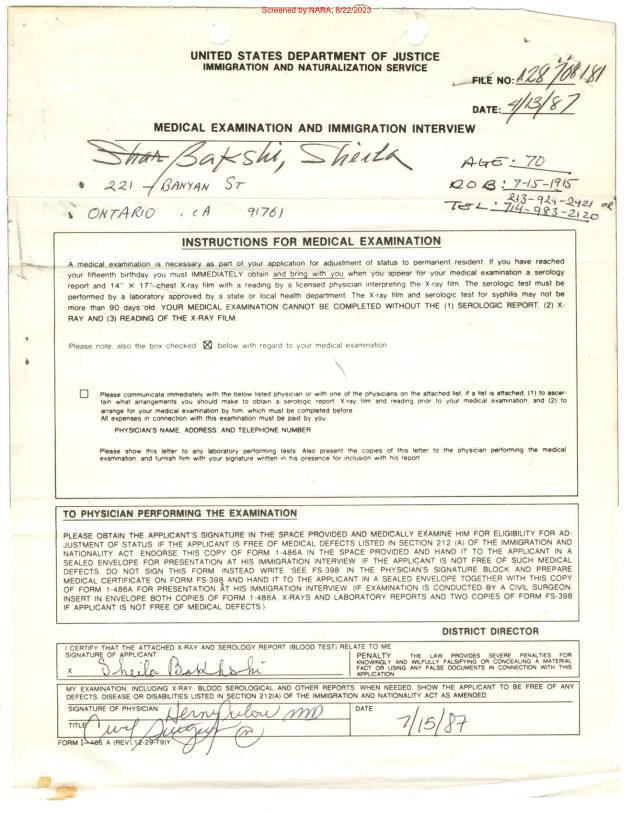 Screened by NARA, 8/22/2023
UNITED STATES DEPARTMENT OF JUSTICE
IMMIGRATION AND NATURALIZATION SERVICE
FILE NO: A28 708 181
DATE: 4/13/87
MEDICAL EXAMINATION AND IMMIGRATION INTERVIEW
Bakshi, Sheila
AGE: 70
221 BANYAN ST
DOB: 7-15-1915
ONTARIO . CA 91761
TEL: 213-924-2421 or
714-983-2120
INSTRUCTIONS FOR MEDICAL EXAMINATION
A medical examination is necessary as part of your application for adjustment of status to permanent resident. If you have reached
your fifteenth birthday you must IMMEDIATELY obtain and bring with you when you appear for your medical examination a serology
report and 14" X 17" chest X-ray film with a reading by a licensed physician interpreting the X-ray film. The serologic test must be
performed by a laboratory approved by a state or local health department. The X-ray film and serologic test for syphilis may not be
more than 90 days old. YOUR MEDICAL EXAMINATION CANNOT BE COMPLETED WITHOUT THE (1) SEROLOGIC REPORT, (2) X-
RAY AND (3) READING OF THE X-RAY FILM.
Please note, also the box checked ☒ below with regard to your medical examination
☐ Please communicate immediately with the below listed physician or with one of the physicians on the attached list, if a list is attached, (1) to ascer-
tain what arrangements you should make to obtain a serologic report, X-ray film and reading prior to your medical examination, and (2) to
arrange for your medical examination by him, which must be completed before
All expenses in connection with this examination must be paid by you
PHYSICIAN'S NAME, ADDRESS, AND TELEPHONE NUMBER
Please show this letter to any laboratory performing tests. Also present the copies of this letter to the physician performing the medical
examination, and furnish him with your signature written in his presence for inclusion with his report
TO PHYSICIAN PERFORMING THE EXAMINATION
PLEASE OBTAIN THE APPLICANT'S SIGNATURE IN THE SPACE PROVIDED AND MEDICALLY EXAMINE HIM FOR ELIGIBILITY FOR AD-
JUSTMENT OF STATUS. IF THE APPLICANT IS FREE OF MEDICAL DEFECTS LISTED IN SECTION 212 (A) OF THE IMMIGRATION AND
NATIONALITY ACT, ENDORSE THIS COPY OF FORM 1-486A IN THE SPACE PROVIDED AND HAND IT TO THE APPLICANT IN A
SEALED ENVELOPE FOR PRESENTATION AT HIS IMMIGRATION INTERVIEW. IF THE APPLICANT IS NOT FREE OF SUCH MEDICAL
DEFECTS, DO NOT SIGN THIS FORM. INSTEAD WRITE "SEE FS-398" IN THE PHYSICIAN'S SIGNATURE BLOCK AND PREPARE
MEDICAL CERTIFICATE ON FORM FS-398 AND HAND IT TO THE APPLICANT IN A SEALED ENVELOPE TOGETHER WITH THIS COPY
OF FORM 1-486A FOR PRESENTATION AT HIS IMMIGRATION INTERVIEW. (IF EXAMINATION IS CONDUCTED BY A CIVIL SURGEON,
INSERT IN ENVELOPE BOTH COPIES OF FORM 1-486A, X-RAYS AND LABORATORY REPORTS AND TWO COPIES OF FORM FS-398
IF APPLICANT IS NOT FREE OF MEDICAL DEFECTS.)
DISTRICT DIRECTOR
I CERTIFY THAT THE ATTACHED X-RAY AND SEROLOGY REPORT (BLOOD TEST) RELATE TO ME
SIGNATURE OF APPLICANT
X Sheila Bakhshi
PENALTY THE LAW PROVIDES SEVERE PENALTIES FOR
KNOWINGLY AND WILFULLY FALSIFYING OR CONCEALING A MATERIAL
FACT OR USING ANY FALSE DOCUMENTS IN CONNECTION WITH THIS
APPLICATION
MY EXAMINATION, INCLUDING X-RAY, BLOOD SEROLOGICAL AND OTHER REPORTS, WHEN NEEDED, SHOW THE APPLICANT TO BE FREE OF ANY
DEFECTS, DISEASE OR DISABILITIES LISTED IN SECTION 212(A) OF THE IMMIGRATION AND NATIONALITY ACT AS AMENDED.
SIGNATURE OF PHYSICIAN MD
DATE
7/15/87
TITLE Civil Surgeon
FORM I-486 A (REV. 12-29-79)Y